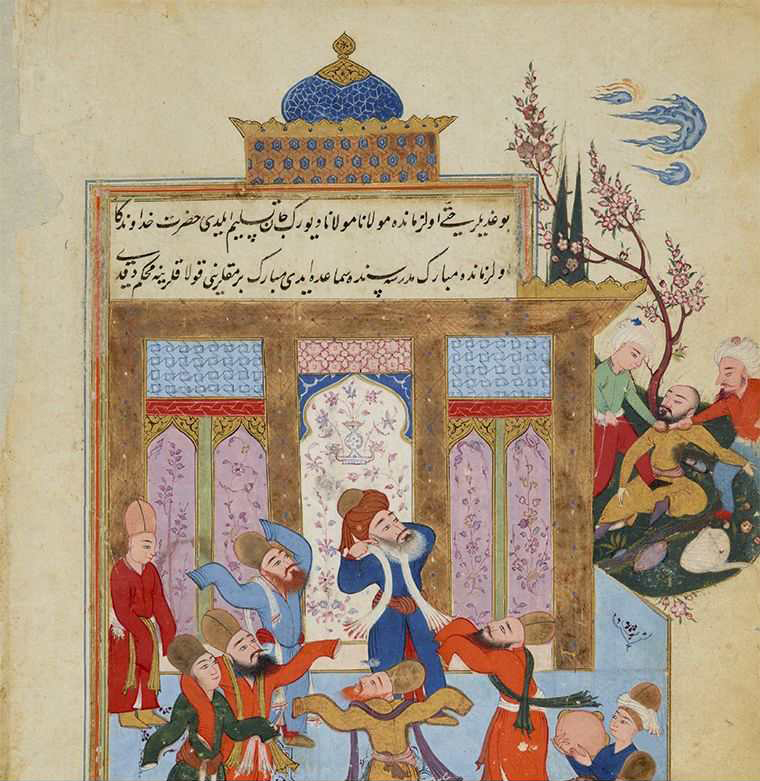 بوغدیلر حتّی اولزمانده مولانا مولانا دیورك جان تسلیم ایلدی حضرت خداوندكا
ولزمانده مبارك مدرسه سنده سماعده ایدی مبارك برمقلرینی قولاقلرینه محکم دیقدی